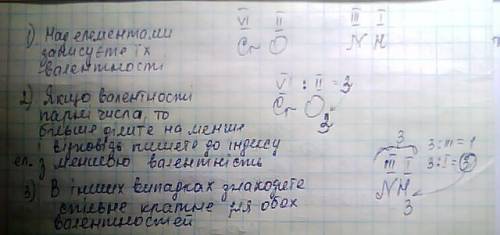 VI II III I
1) Над елементами Cr O N H
записуєте їх
валентності
2) Якщо валентності VI : II = 3
парні числа, то Cr O 3
більше ділите на менше
і відповідь пишете до індексу
ел. з меншою валентність
3 3:III=1
3) В інших випадках знаходите III I 3:I=3
спільне кратне для обох NH
валентностей 3